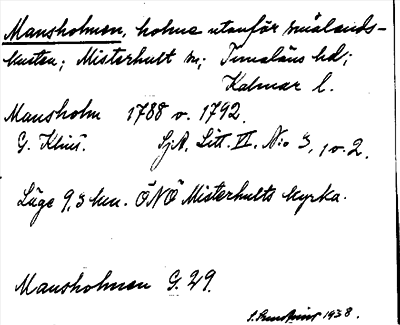 Mansholmen, holme utanför Smålands-
kusten; Misterhult sn; Tunaläns hd;
Kalmar l.
Mansholm 1788 o. 1792.
G. Klint. SjA, Litt. VI. N:o 3, 1 o. 2.
Läge 9,3 km. ÖNÖ Misterhults kyrka.
Mansholmen G. 29.
1938.